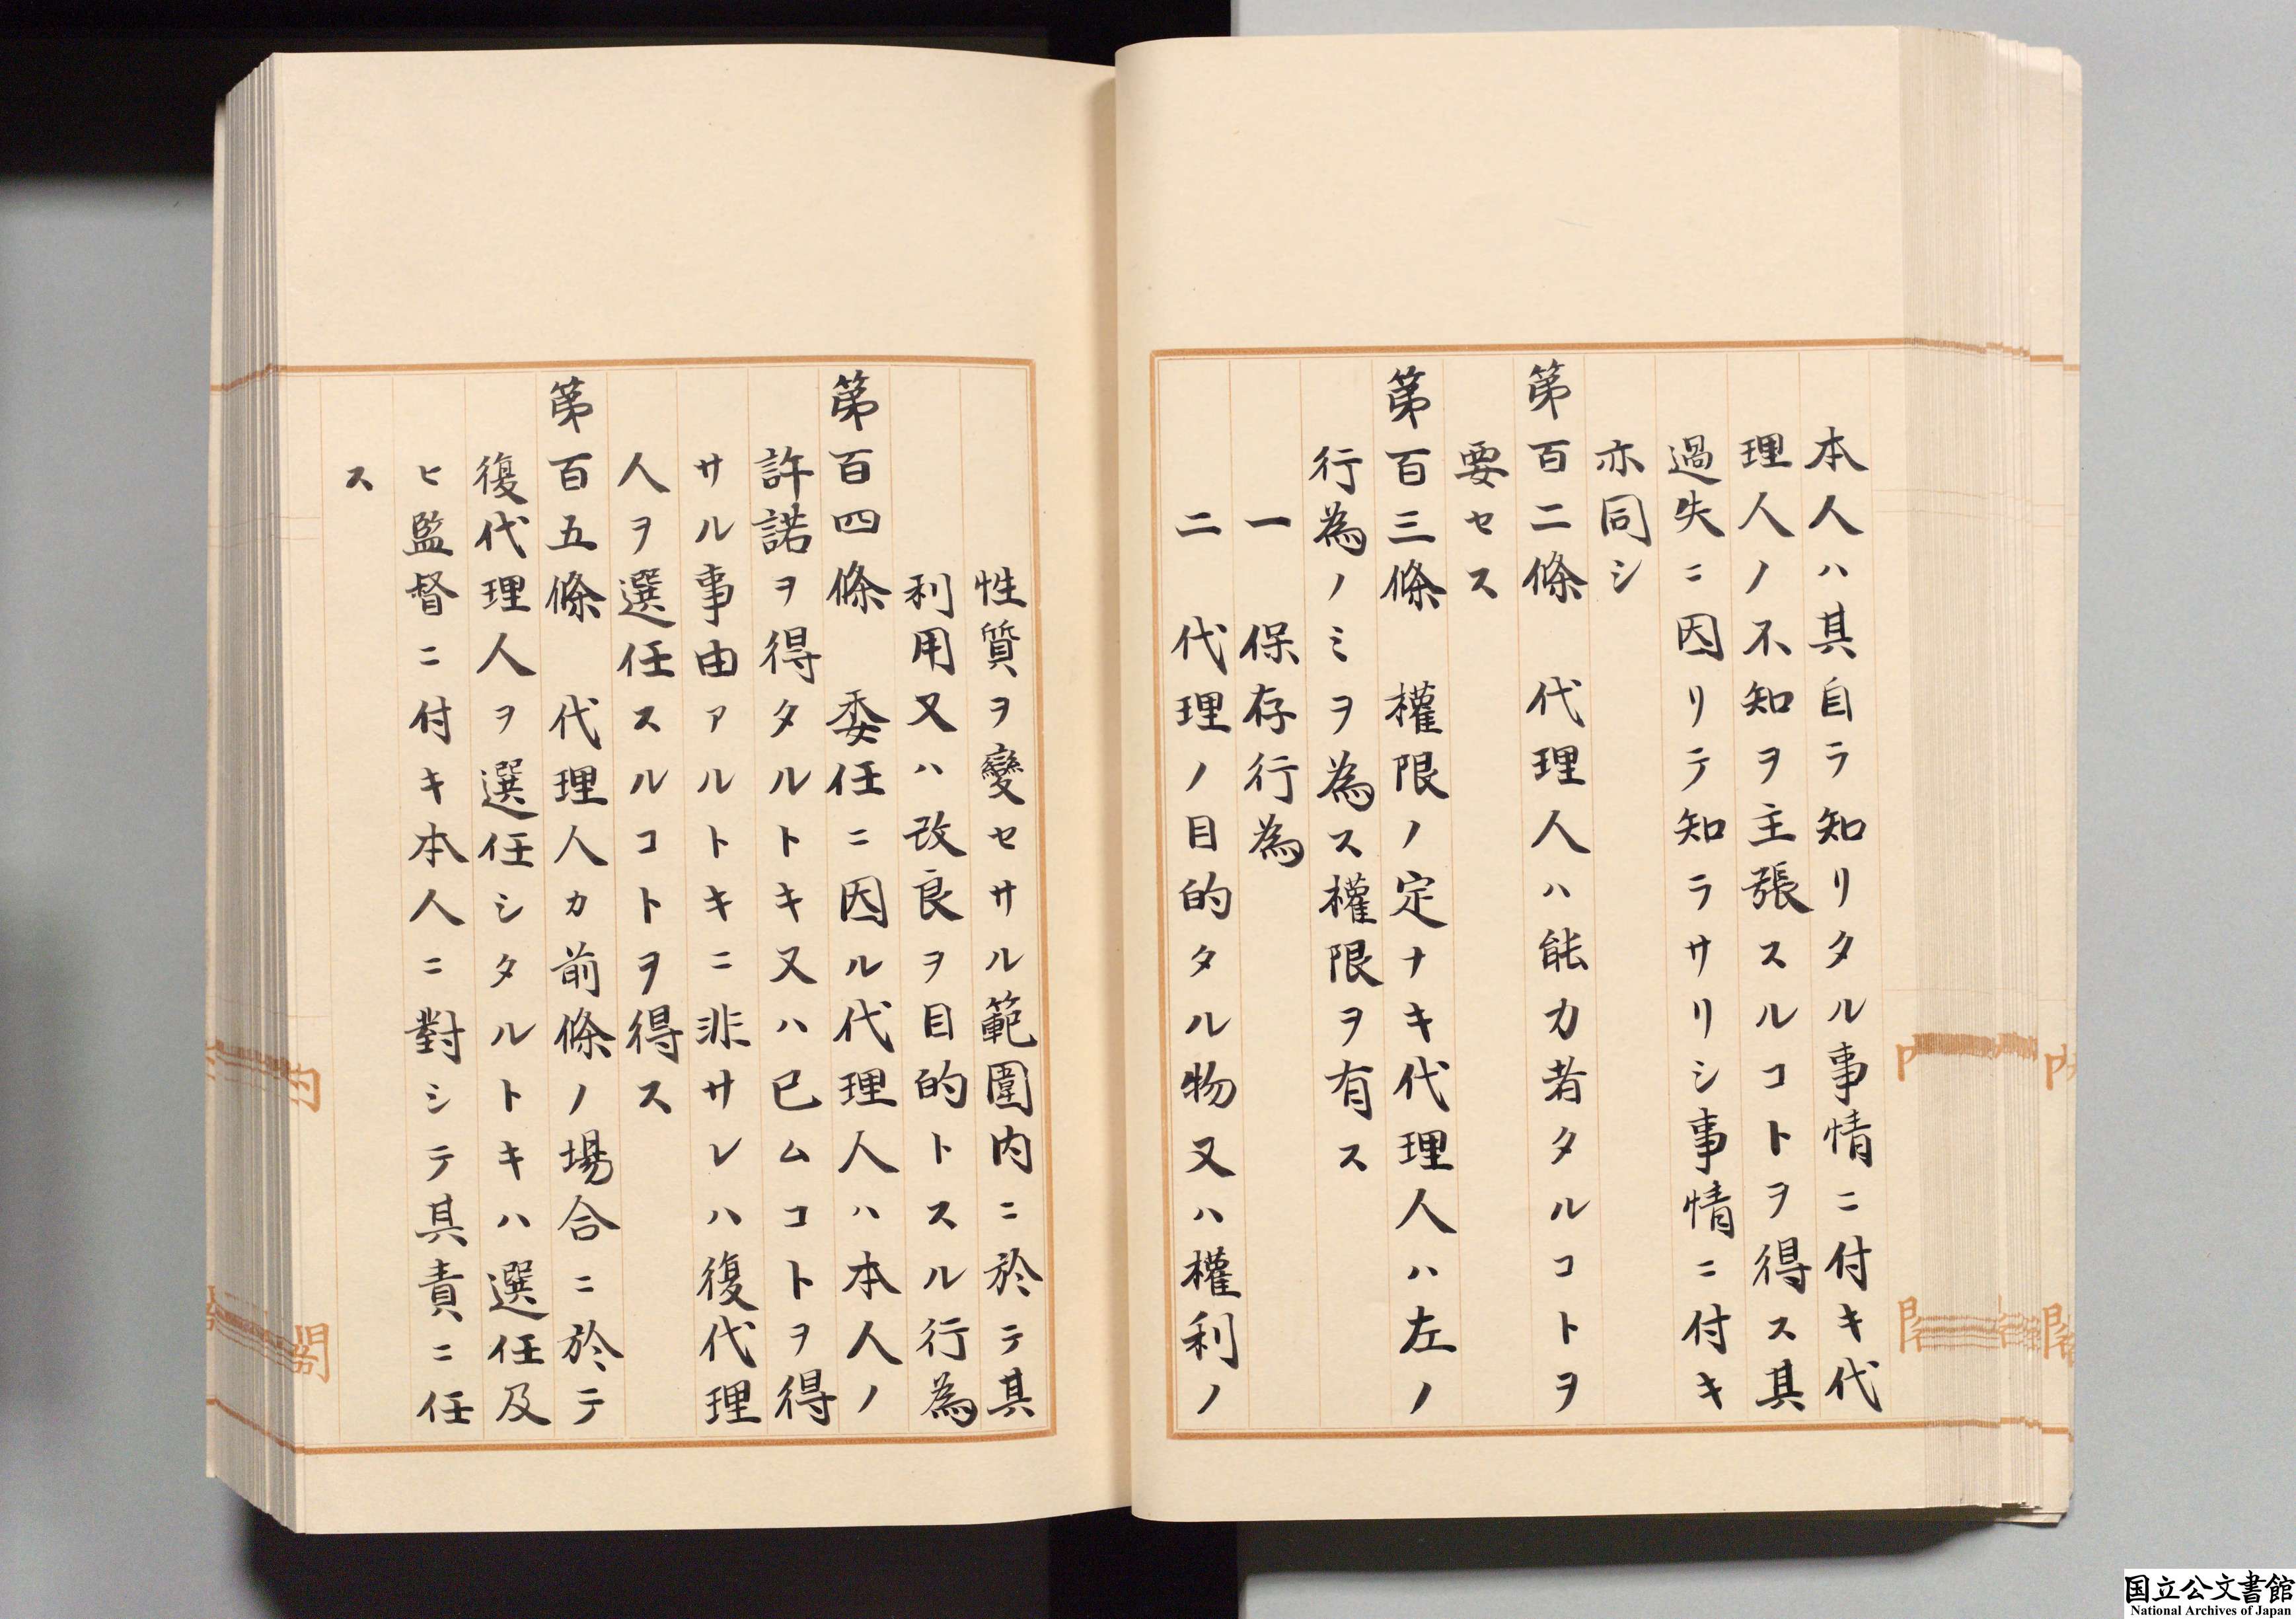 本人ハ其自ラ知リタル事情ニ付キ代
理人ノ不知ヲ主張スルコトヲ得ス其
過失ニ因リテ知ラサリシ事情ニ付キ
亦同シ
第百二條　代理人ハ能力者タルコトヲ
要セス
第百三條　權限ノ定ナキ代理人ハ左ノ
行為ノミヲ為ス權限ヲ有ス
一　保存行為
二　代理ノ目的タル物又ハ權利ノ
性質ヲ變セサル範圍內ニ於テ其
利用又ハ改良ヲ目的トスル行為
第百四條　委任ニ因ル代理人ハ本人ノ
許諾ヲ得タルトキ又ハ已ムコトヲ得
サル事由アルトキニ非サレハ復代理
人ヲ選任スルコトヲ得ス
第百五條　代理人カ前條ノ場合ニ於テ
復代理人ヲ選任シタルトキハ選任及
ヒ監督ニ付キ本人ニ對シテ其責ニ任
ス
閣
国立公文書館
National Archives of Japan